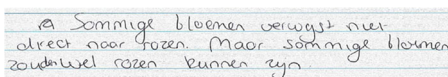 a Sommige bloemen verwijst niet
direct naar rozen. Maar sommige bloemen
zouden wel rozen kunnen zijn.